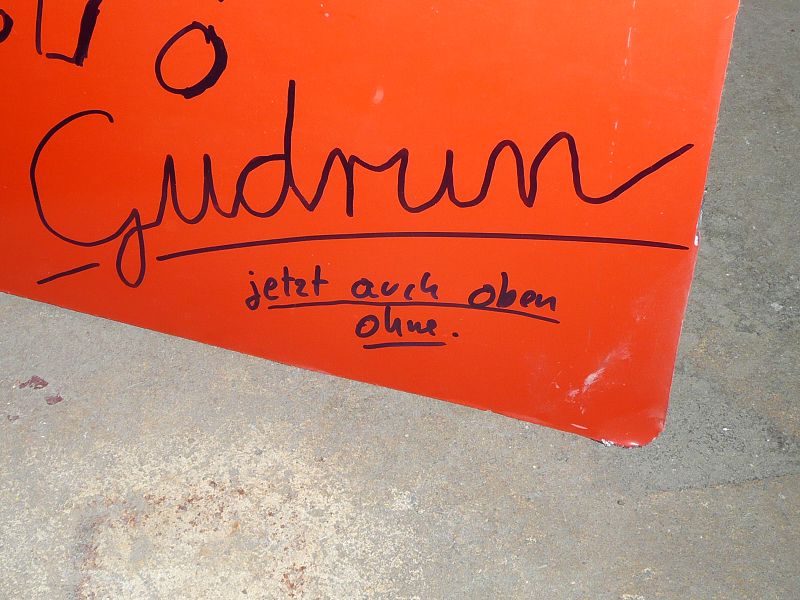 Gudrun
jetzt auch oben
ohne.